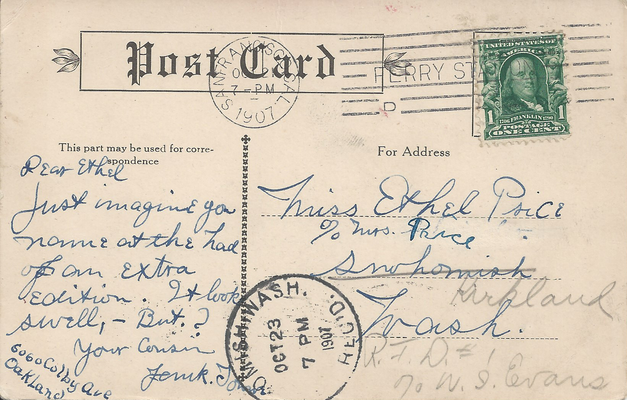 Post Card
SAN FRANCISCO, CAL.
7-PM
1907
FERRY STA.
D
UNITED STATES OF AMERICA
1 FRANKLIN 1
POSTAGE
ONE CENT
This part may be used for corre-
spondence
For Address
Dear Ethel
Just imagine you
name at the head
of an extra
edition. It look
swell, - But.?
Your Cousin
6060 Colby Ave
Oakland
Miss Ethel Price
c/o Mrs. Price
Snohomish
Kirkland
Wash.
R.F.D. # 1
c/o W. S. Evans
WASH. REC'D.
OCT 23
7 PM
1907